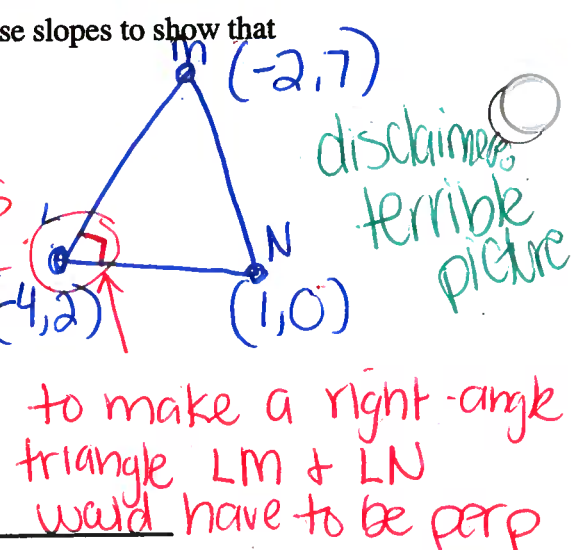 se slopes to show that
m (-2,7)
disclaimer:
terrible
picture
L
N
-4,2)
(1,0)
to make a right-angle
triangle LM & LN
would have to be perp